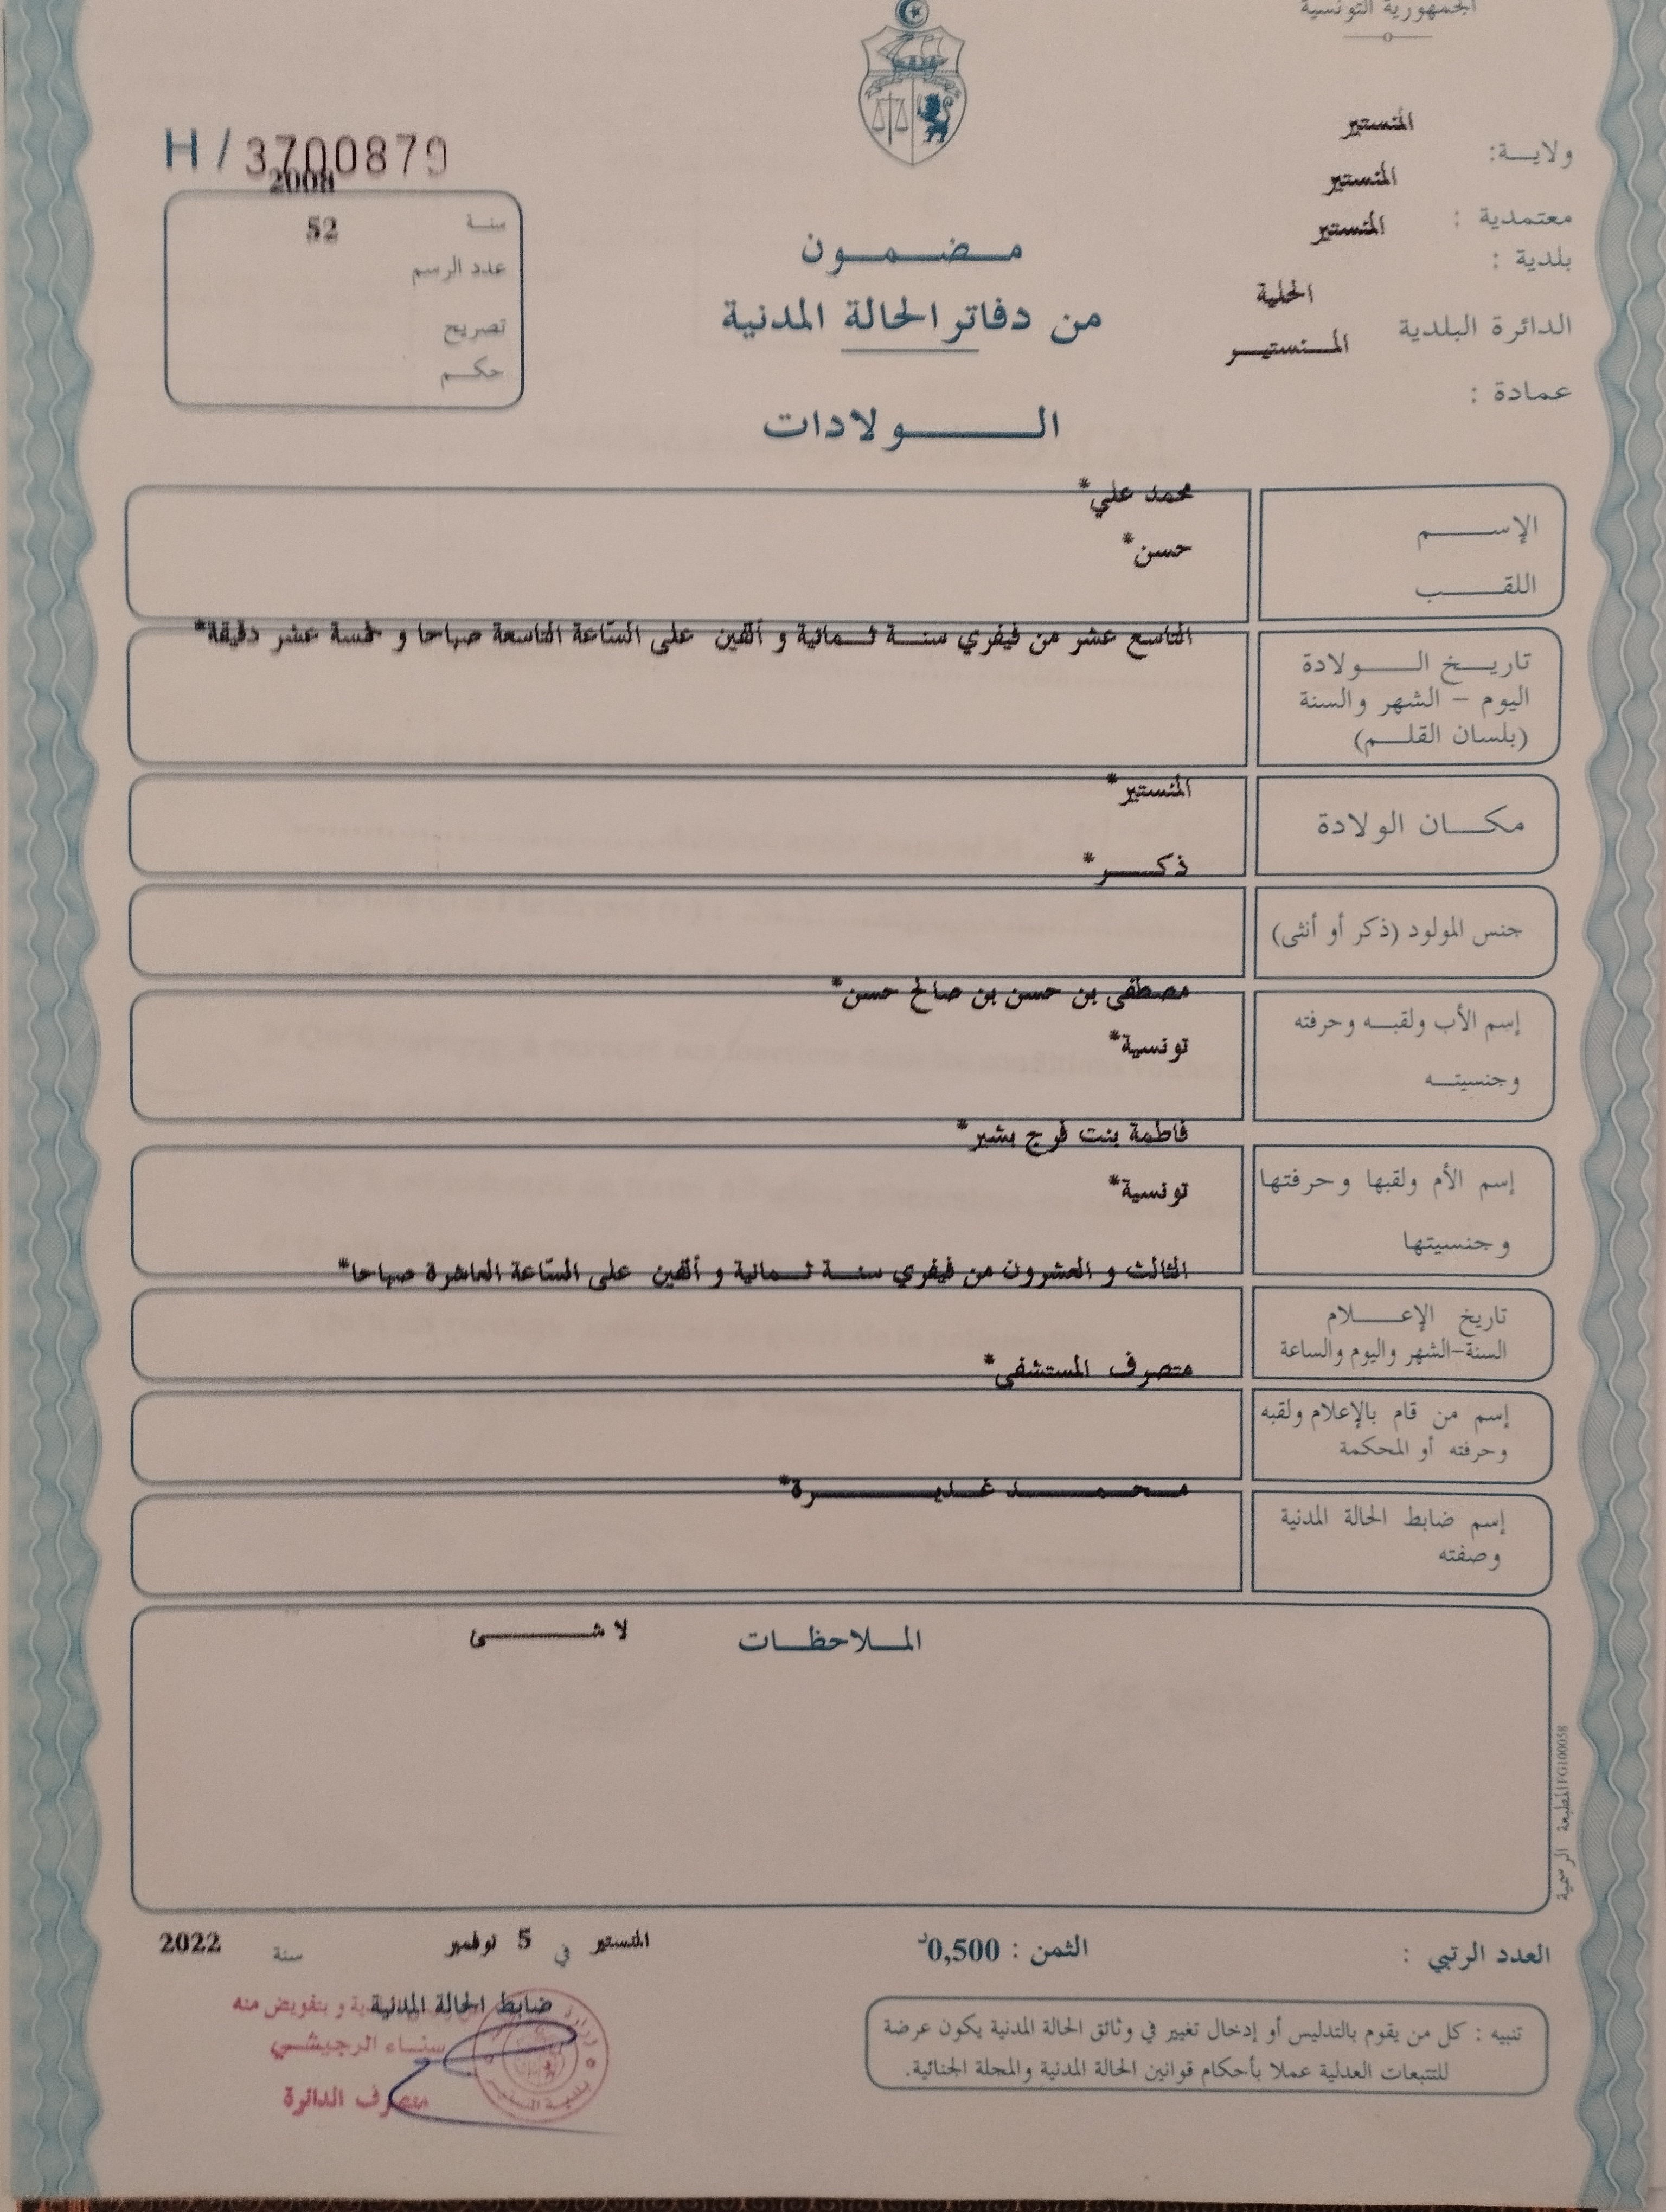 الجمهورية التونسية
ولايـــة: المنستير
معتمدية : المنستير
بلدية : المنستير
الدائرة البلدية الحلية
عمادة : المـــنستيـــر
H / 3700879
سنـة 2008
عدد الرسم 52
تصريح
حكـم
مـضـمـون
من دفاتر الحالة المدنية
الــــولادات
الإســـم محمد علي*
اللقـــب حسن*
تاريـــخ الـــولادة
اليوم - الشهر والسنة
(بلسان القلـــم)
التاسع عشر من فيفري سنـــة ثـــمانية و ألفين على الساعة التاسعة صباحا و خمسة عشر دقيقة*
مكـــان الولادة المنستير*
جنس المولود (ذكر أو أنثى) ذكـــر*
إسم الأب ولقبـــه وحرفته مصطفى بن حسن بن صالح حسن*
وجنسيتـــه تونسية*
إسم الأم ولقبها وحرفتها فاطمة بنت فرج بشير*
وجنسيتها تونسية*
تاريخ الإعـــلام
السنة-الشهر واليوم والساعة
الثالث و العشرون من فيفري سنـــة ثـــمانية و ألفين على الساعة العاشرة صباحا*
إسم من قام بالإعلام ولقبه
وحرفته أو المحكمة
متصرف المستشفى*
إسم ضابط الحالة المدنية
وصفته
مـــحـــمـــد غـــديـــرة*
المـــلاحظـــات لا شـــئ
المطبعة الرسمية FG100058
العدد الرتبي :
الثمن : 0,500د
المنستير في 5 نوفمبر سنة 2022
ضابط الحالة المدنية
و بتفويض منه
سنـاء الرجيشـي
متصرف الدائرة
بلديـة المنستيـر
تنبيه : كل من يقوم بالتدليس أو إدخال تغيير في وثائق الحالة المدنية يكون عرضة
للتتبعات العدلية عملا بأحكام قوانين الحالة المدنية والمجلة الجنائية.